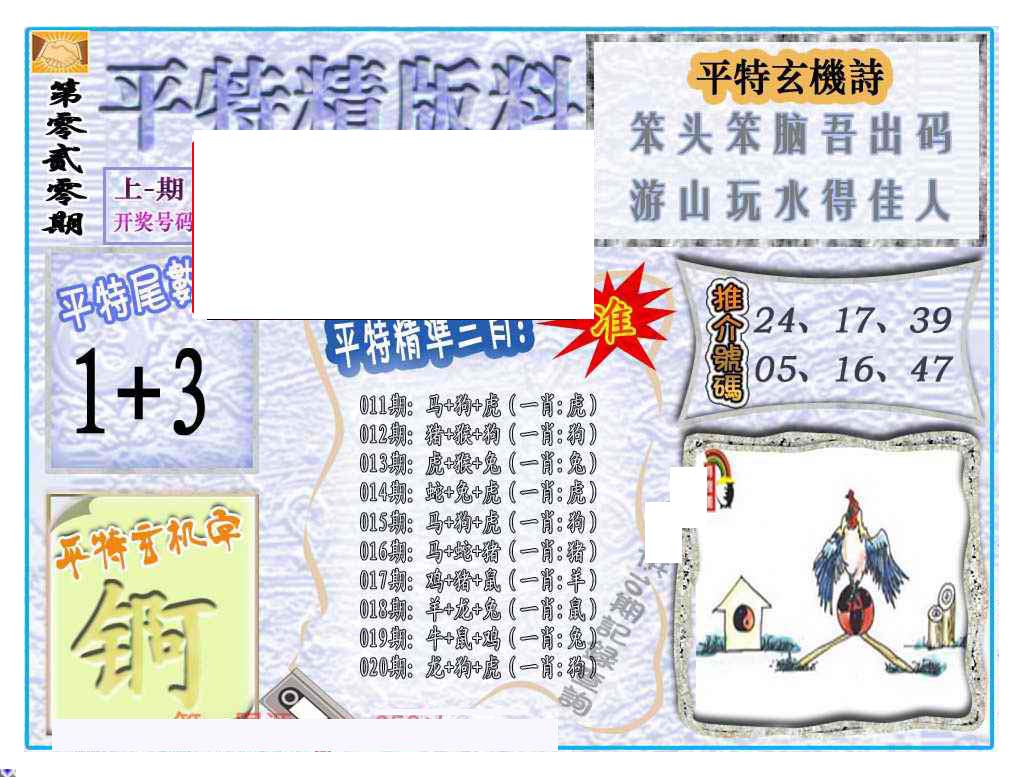 第零贰零期
平特精版料
上-期
开奖号码
平特玄機詩
笨头笨脑吾出码
游山玩水得佳人
平特尾數
1+3
平特精準三肖!
准
推介號碼
24、17、39
05、16、47
011期: 马+狗+虎（一肖:虎）
012期: 猪+猴+狗（一肖:狗）
013期: 虎+猴+兔（一肖:兔）
014期: 蛇+兔+虎（一肖:虎）
015期: 马+狗+虎（一肖:狗）
016期: 马+蛇+猪（一肖:猪）
017期: 鸡+猪+鼠（一肖:羊）
018期: 羊+龙+兔（一肖:鼠）
019期: 牛+鼠+鸡（一肖:兔）
020期: 龙+狗+虎（一肖:狗）
期記錄查詢
平特玄机字
锕